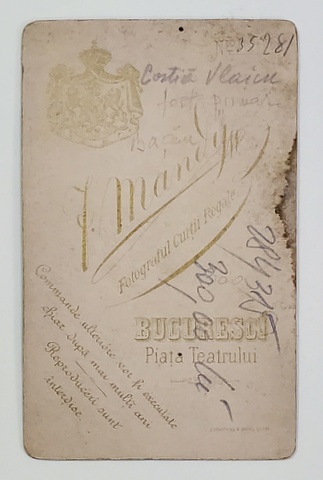 No 35281
Costică Vlaicu
fost primar
Bacău
J. Mandy
Fotograful Curții Regale
BUCURESCI
Piața Teatrului
Comande ulterióre vor fi executate
chiar după mai mulți ani
Reproducerii sunt
interdise
28438